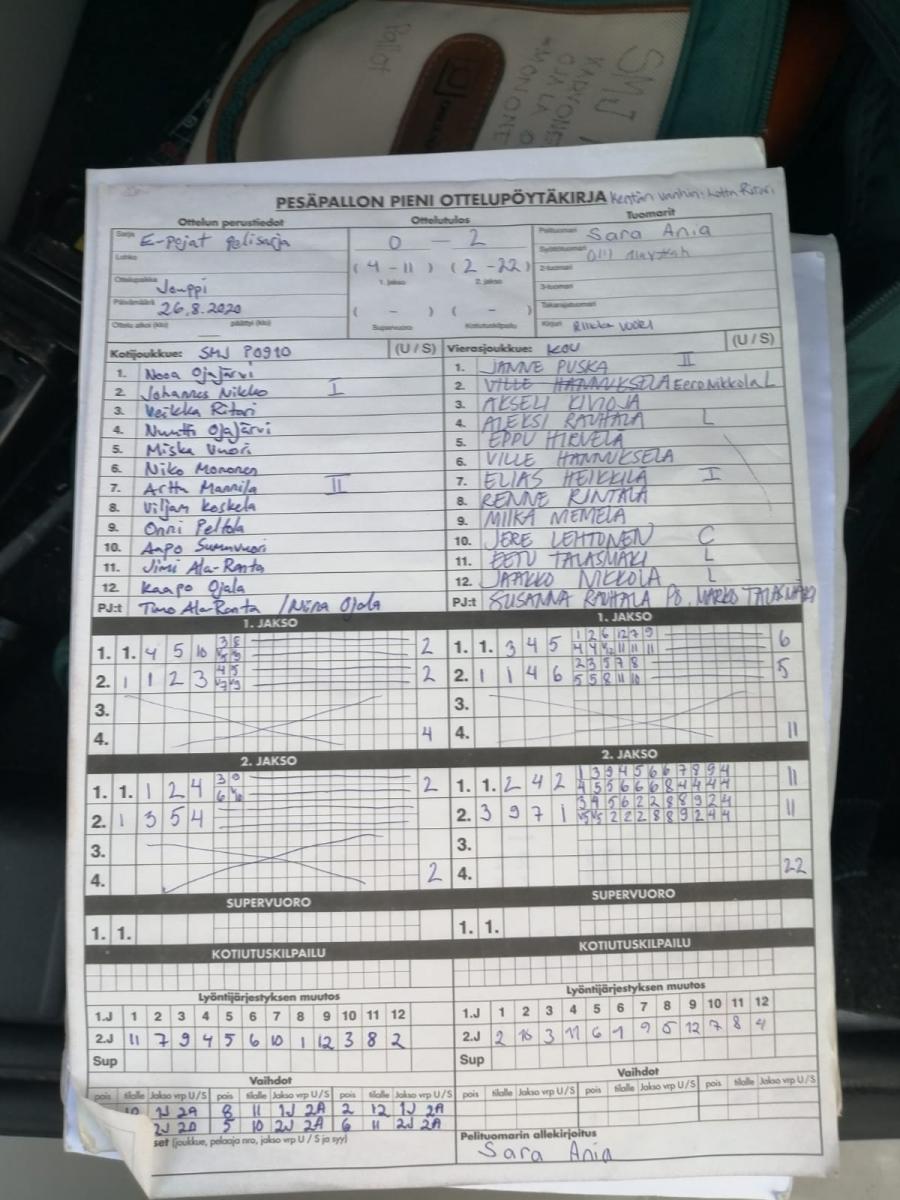 SMJ
PESÄPALLON PIENI OTTELUPÖYTÄKIRJA Kentän vanhin: Lotta Ritari
Ottelun perustiedot Ottelutulos Tuomarit
Sarja E-pojat pelisarja 0 - 2 Pelituomari Sara Ania
Lohko Syöttötuomari
(4 - 11) (2 - 22) 2-tuomari
Ottelupaikka Jouppi 1. jakso 2. jakso 3-tuomari
Päivämäärä 26.8.2020 ( - ) ( - ) Takarajatuomari
Ottelu alkoi (klo) päättyi (klo) Supervuoro Kotiutuskilpailu Kirjuri Riikka Vuori
Kotijoukkue: SMJ P0910 (U / S) Vierasjoukkue: KOU (U / S)
1. Nooa Ojajärvi 1. JANNE PUSKA II
2. Johannes Nikko I 2. VILLE HANNUKSELA Eero Nikkola L
3. Veikka Ritari 3. AKSELI KIVIOJA
4. Nuutti Ojajärvi 4. ALEKSI RAUHALA L
5. Miska Vuori 5. EPPU HIRVELÄ
6. Niko Mononen 6. VILLE HANNUKSELA
7. Arttu Mannila II 7. ELIAS HEIKKILÄ I
8. Viljam Koskela 8. RENNE RINTALA
9. Onni Peltola 9. MIIKA MEMELA
10. Aapo 10. JERE LEHTONEN C
11. Jimi Ala-Ranta 11. EETU TALASMÄKI L
12. Kaapo Ojala 12. JAAKKO NIKKOLA L
PJ:t Timo Ala-Ranta / Nina Ojala PJ:t SUSANNA RAUHALA PJ, MARKO TALASMÄKI
1. JAKSO 1. JAKSO
1. 1. 4 5 10 3 8 2 1. 1. 3 4 5 1 2 6 12 7 9 6
2. 1 1 2 3 4 5 2 2. 1 1 4 6 2 3 5 7 8 5
5 5 8 11 10
3. 3.
4. 4 4. 11
2. JAKSO 2. JAKSO
1. 1. 1 2 4 3 9 2 1. 1. 2 4 2 1 3 9 4 5 6 6 7 8 9 4 11
4 5 5 6 6 6 8 4 4 4 4
2. 1 3 5 4 2. 3 9 7 1 3 4 5 6 2 2 8 8 9 2 4 11
3. 3.
4. 2 4. 22
SUPERVUORO SUPERVUORO
1. 1. 1. 1.
KOTIUTUSKILPAILU KOTIUTUSKILPAILU
Lyöntijärjestyksen muutos Lyöntijärjestyksen muutos
1.J 1 2 3 4 5 6 7 8 9 10 11 12 1.J 1 2 3 4 5 6 7 8 9 10 11 12
2.J 11 7 9 4 5 6 10 1 12 3 8 2 2.J 2 10 3 11 6 1 9 5 12 7 8 4
Sup Sup
Vaihdot Vaihdot
pois tilalle Jakso vrp U/S pois tilalle Jakso vrp U/S pois tilalle Jakso vrp U/S pois tilalle Jakso vrp U/S pois tilalle Jakso vrp U/S pois tilalle Jakso vrp U/S
1J 2A 8 11 1J 2A 2 12 1J 2A
5 10 2J 2A 6 11 2J 2A
set (joukkue, pelaaja nro, jakso vrp U / S ja syy) Pelituomarin allekirjoitus
Sara Ania